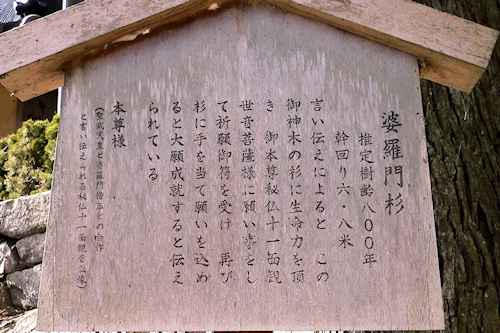 婆羅門杉
推定樹齢八〇〇年
幹回り六・八米
言い伝えによると この
御神木の杉に生命力を頂
き 御本尊秘仏十一面観
世音菩薩様に願い事をし
て祈願御符を受け 再び
杉に手を当て願いを込め
ると大願成就すると伝え
られている
本尊様
(聖武天皇と婆羅門僧正との合作
と言い伝えられる秘仏十一面観音立像)